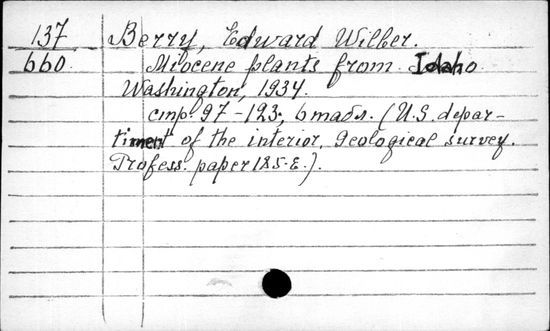 137 Berry, Edward Wilber.
660. Miocene plants from Idaho
Washington, 1934.
стр. 97-123, 6 табл. (U.S. depar-
timent of the interior. Geological survey.
Profess. paper 185-E.).